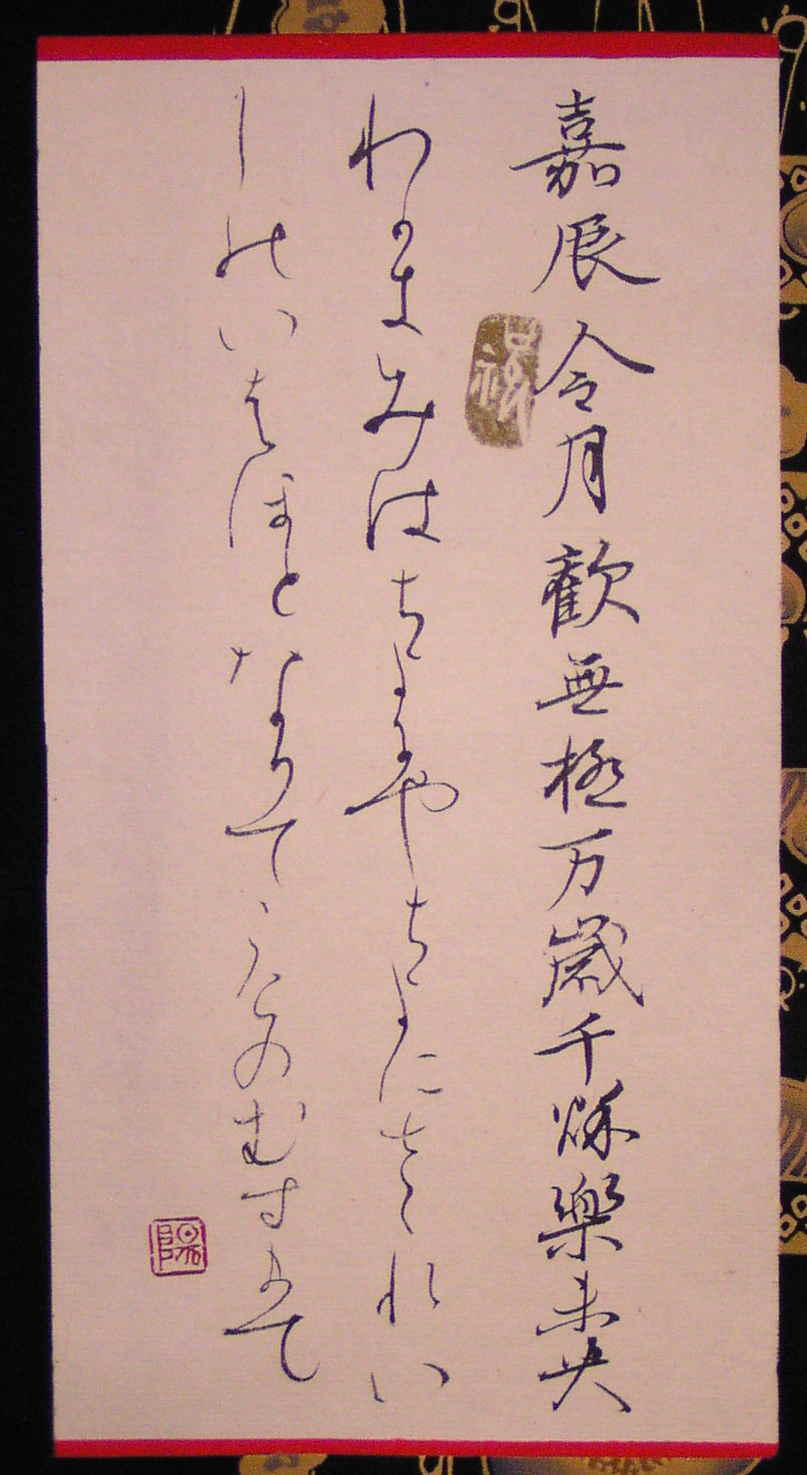 嘉辰令月歓無極万歳千秌樂未央
わかきみはちよにやちよにさゝれい
しのいはほとなりてこけのむすまて
福
陽